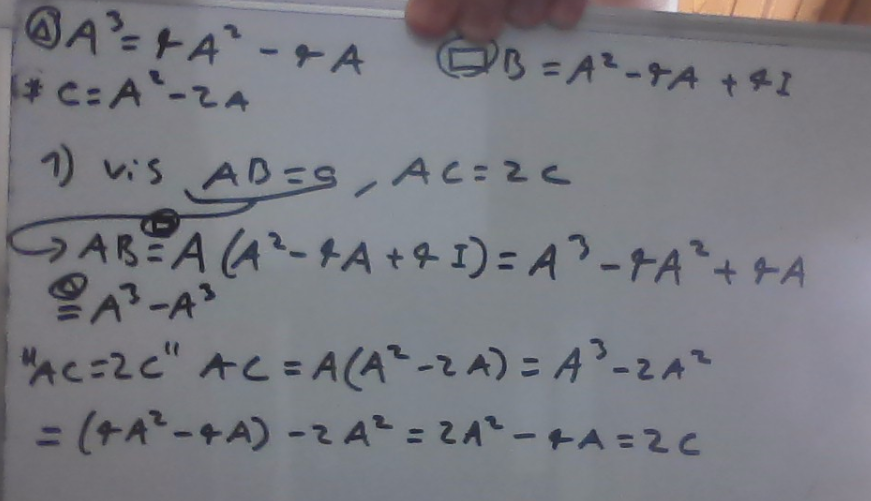 Ⓐ A³ = 4A² - 4A  □ B = A² - 4A + 4I
* C = A² - 2A
1) vis AB = 0, AC = 2C
→ AB = A(A² - 4A + 4I) = A³ - 4A² + 4A
= A³ - A³
"AC = 2C" AC = A(A² - 2A) = A³ - 2A²
= (4A² - 4A) - 2A² = 2A² - 4A = 2C